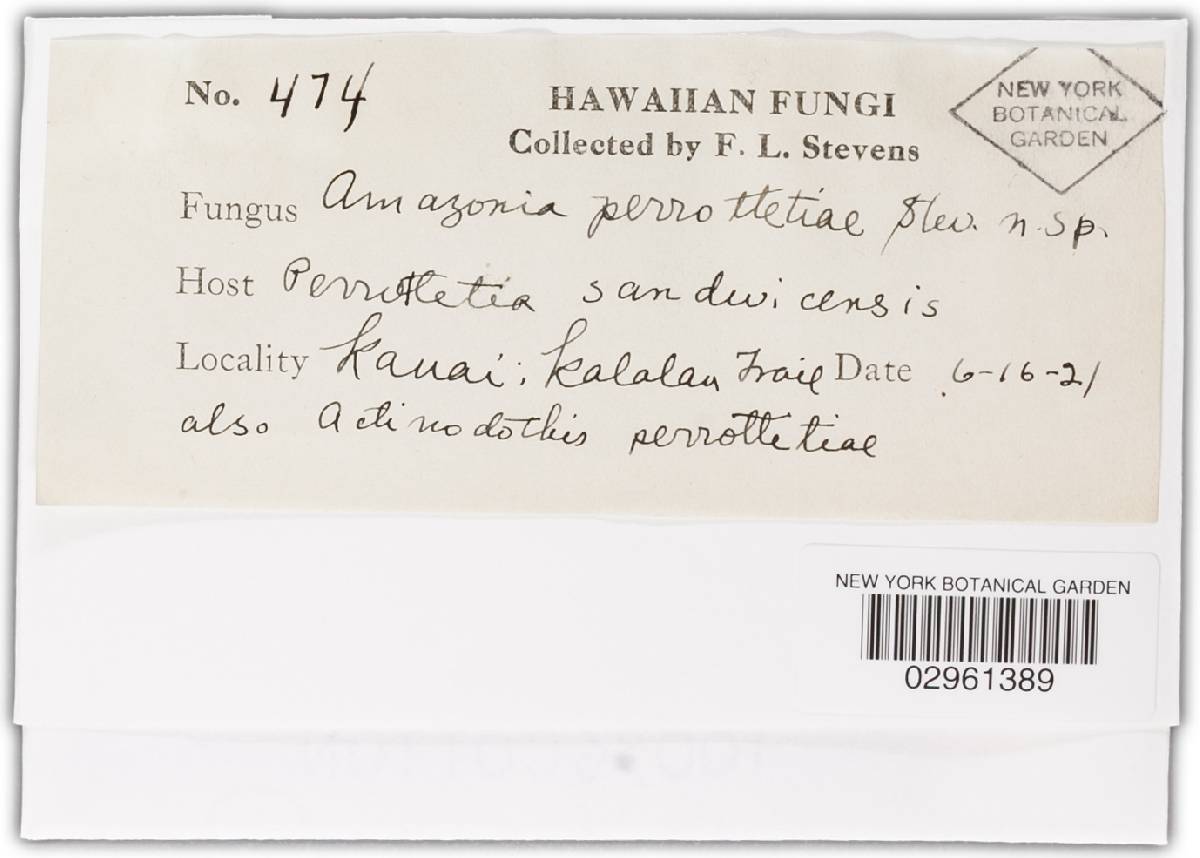 No. 474
HAWAIIAN FUNGI
Collected by F. L. Stevens
NEW YORK
BOTANICAL
GARDEN
Fungus Amazonia perrottetiae Stev. n. sp.
Host Perrottetia sandwicensis
Locality Kauai; Kalalau Trail Date 6-16-21
also Actinodothis perrottetiae
NEW YORK BOTANICAL GARDEN
02961389